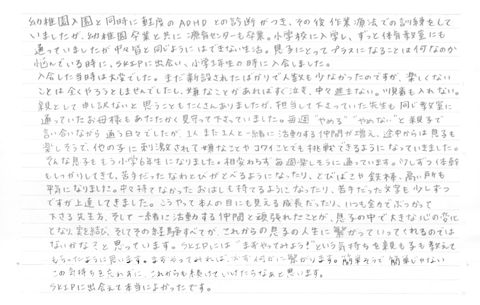 幼稚園入園と同時に軽度のADHDとの診断がつき、その後作業療法での訓練をして
いましたが、幼稚園卒業と共に療育センターも卒業。小学校に入学し、ずっと体育教室にも
通っていましたが中々皆と同じようにはできない生活。息子にとってプラスになることは何なのか
悩んでいる時に、SKIPに出会い、小学3年生の時に入会しました。
入会した当時は大変でした。まだ新設されたばかりで人数も少なかったのですが、楽しくない
ことは全くやろうとしませんでしたし、嫌なことがあればすぐ泣き、中々進まない。順番も入れない。
親として申し訳ないと思うこともたくさんありましたが、担当して下さっていた先生も同じ教室に
通っていたお母様もあたたかく見守って下さっていました。毎週"やめる""やめない"と親子で
言い合いながら通う日々でしたが、1人また1人と一緒に活動する仲間が増え、途中からは息子も
楽しそうで、他の子に刺激されて嫌なことやコワイことでも挑戦できるようになっていきました。
そんな息子ももう小学6年生になりました。相変わらず毎週楽しそうに通っています。少しずつ体幹
もしっかりしてきて、苦手だったなわとびがとべるようになったり、とびばこや鉄棒、高い所も
平気になりました。中々持てなかったおはしも持てるようになったり、苦手だった文字も少しずつ
ですが上達してきました。こうやって本人の目にも見える成長だったり、いつも全力でぶつかって
下さる先生方、そして一緒に活動する仲間と頑張れたことが、息子の中で大きな心の変化
となり、そしてその経験すべてが、これからの息子の人生に繋がっていってくれるのでは
ないかなと思っています。SKIPには"まずやってみよう!"という気持ちを親も子も教えて
もらったように思います。まずやってみれば、必ず何かに繋がります。簡単そうで簡単じゃない
この気持ちを忘れずに、これからも続けていけたらなぁと思います。
SKIPに出会えて本当によかったです。